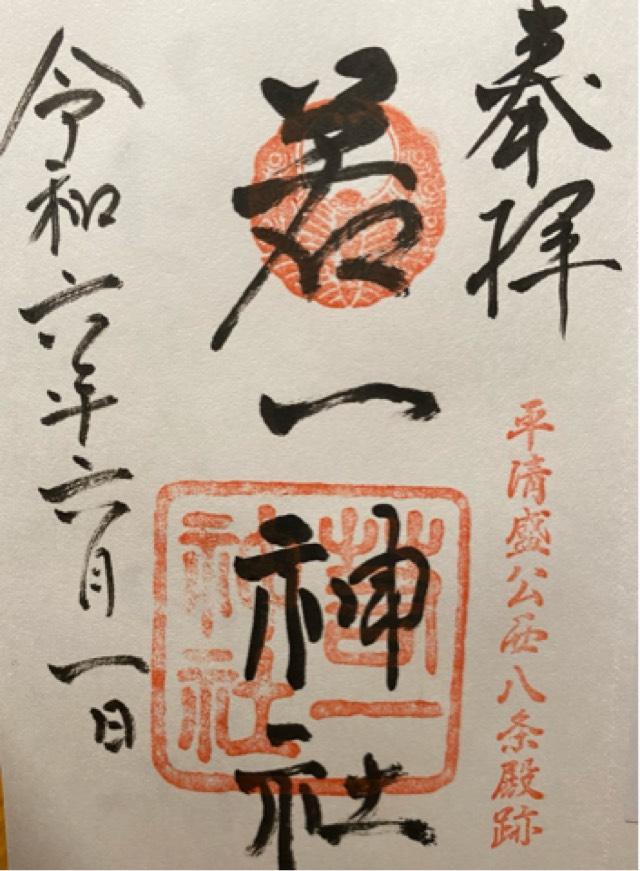 奉拝
平清盛公西八条殿跡
若一神社
若一
神社
令和六年六月一日